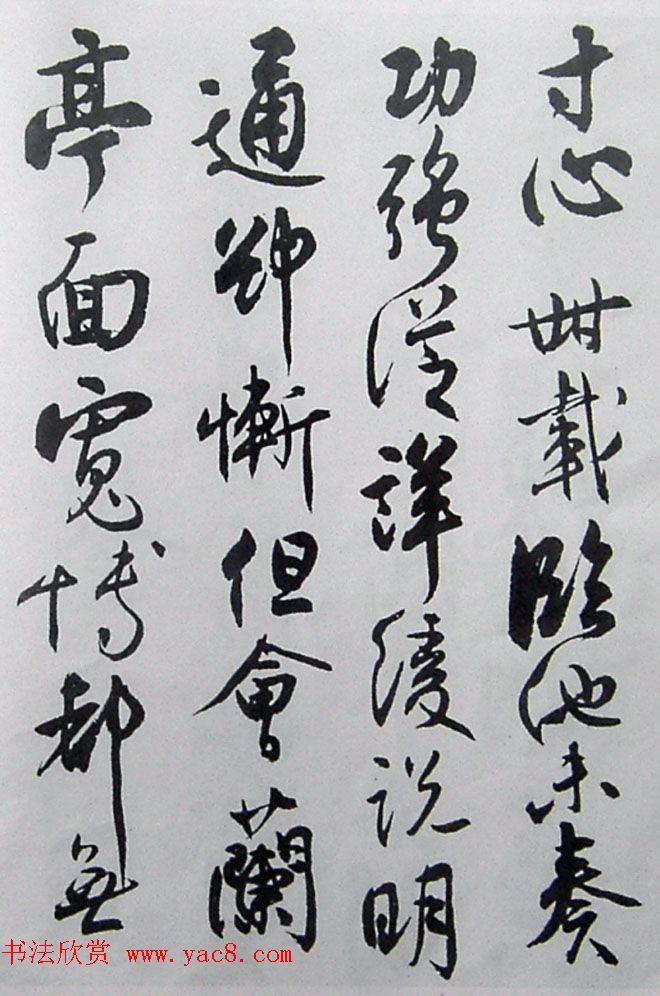 寸心 卌載臨池未奏
功強從詳緩說明
通卻慚但會蘭
亭面寬博都無
书法欣赏 www.yac8.com